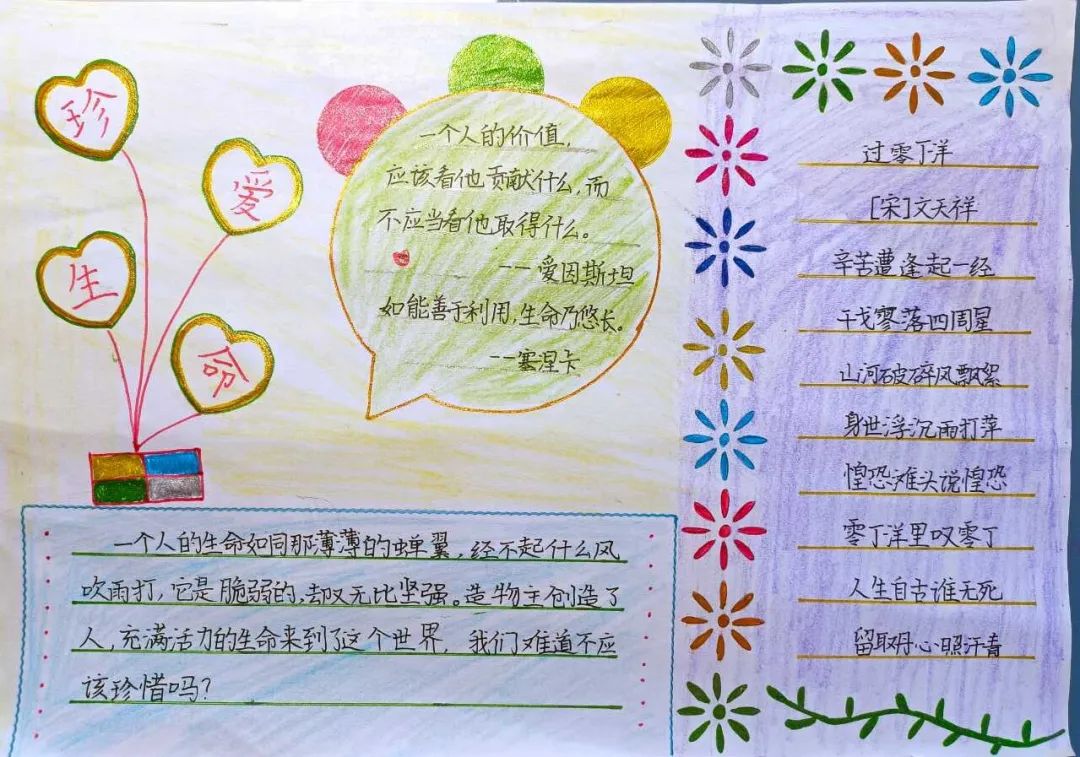 珍
爱
生
命
一个人的价值，
应该看他贡献什么，而
不应当看他取得什么。
——爱因斯坦
如能善于利用，生命乃悠长。
——塞涅卡
一个人的生命如同那薄薄的蝉翼，经不起什么风
吹雨打，它是脆弱的，却又无比坚强。造物主创造了
人，充满活力的生命来到了这个世界，我们难道不应
该珍惜吗？
过零丁洋
[宋]文天祥
辛苦遭逢起一经
干戈寥落四周星
山河破碎风飘絮
身世浮沉雨打萍
惶恐滩头说惶恐
零丁洋里叹零丁
人生自古谁无死
留取丹心照汗青